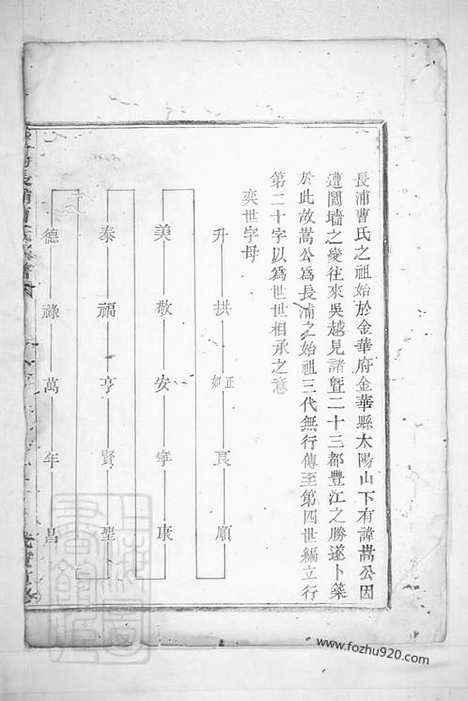 長浦曹氏之祖始於金華府金華縣太陽山下有諱嵩公因
遭鬩墻之變往來吳越見諸暨二十三都豐江之勝遂卜築
於此故嵩公爲長浦之始祖三代無行傳至第四世編立行
第二十字以爲世世相承之意
奕世字母
升 拱 正如 良 順
美 敬 安 寧 康
泰 福 亨 賢 聖
德 祿 萬 年 昌
www.fozhu920.com